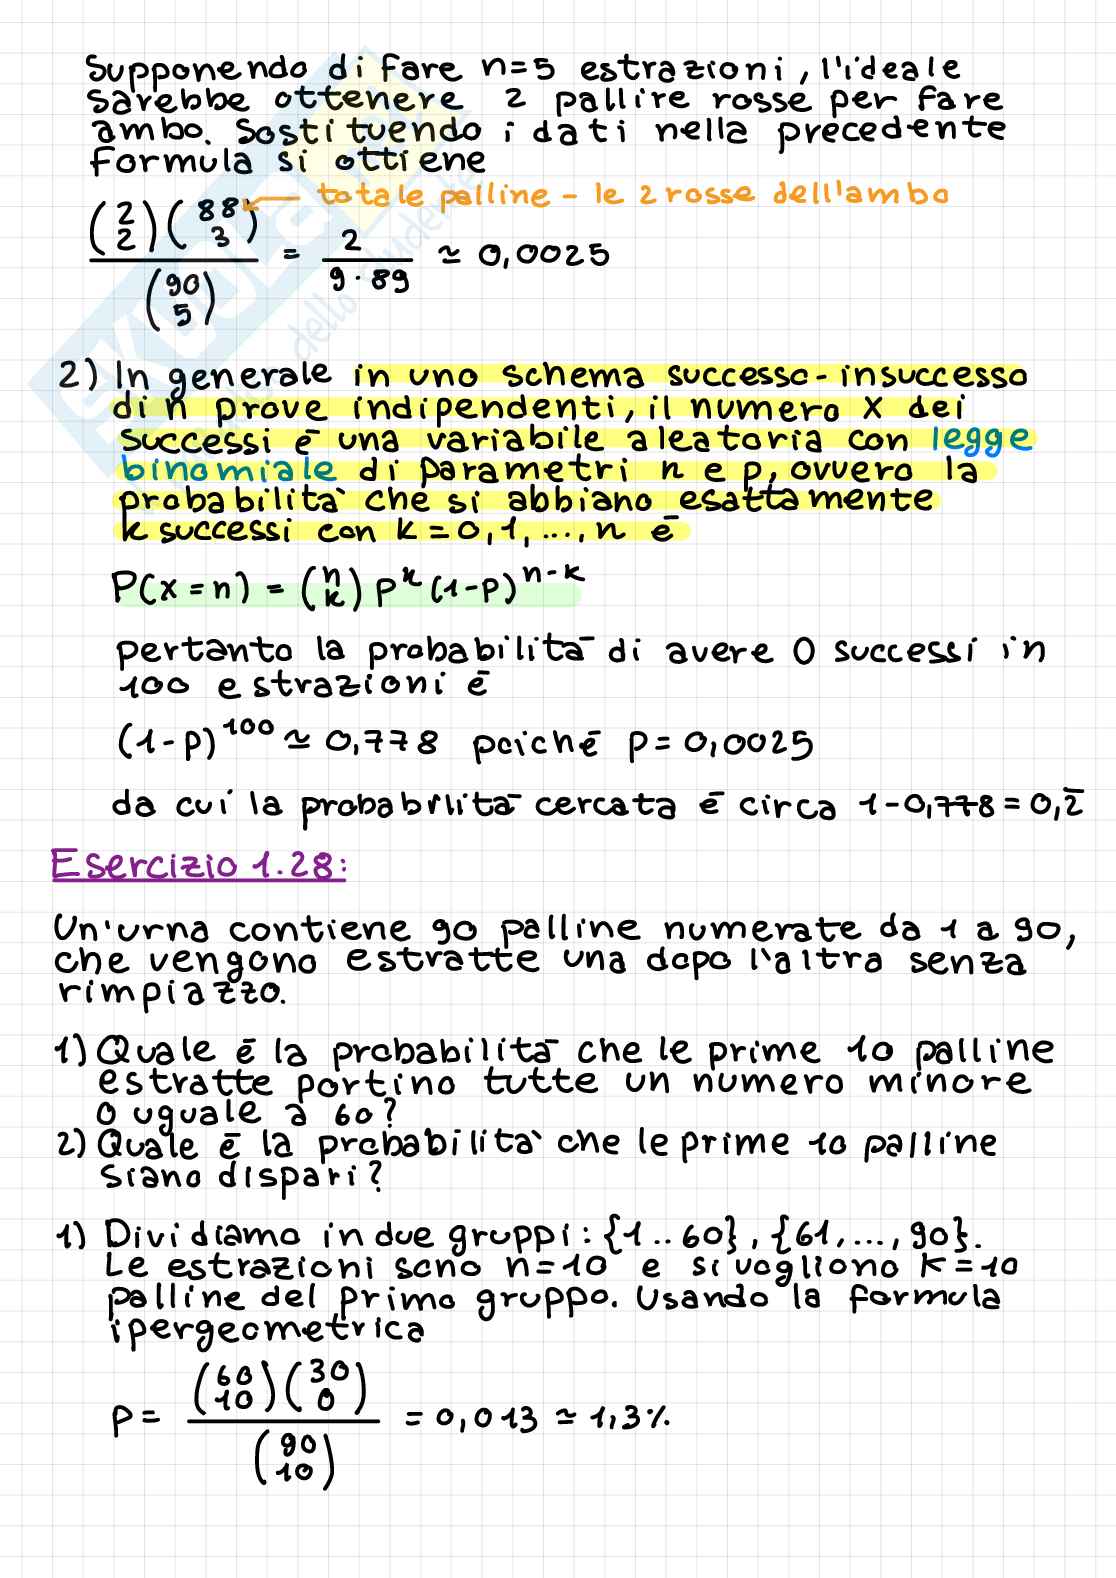 Supponendo di fare n=5 estrazioni, l'ideale
sarebbe ottenere 2 pallire rosse per fare
ambo. Sostituendo i dati nella precedente
formula si ottiene
totale palline - le 2 rosse dell'ambo
(2 2)(88 3) / (90 5) = 2 / 9·89 ≃ 0,0025
2) In generale in uno schema successo-insuccesso
di n prove indipendenti, il numero X dei
successi é una variabile aleatoria con legge
binomiale di parametri n e p, ovvero la
probabilità che si abbiano esattamente
k successi con k=0,1,...,n é
P(x=n) = (n k) p^x (1-p)^n-k
pertanto la probabilità di avere 0 successi in
100 estrazioni é
(1-p)^100 ≃ 0,778 poiché p=0,0025
da cui la probabilità cercata é circa 1-0,778=0,2
Esercizio 1.28:
Un'urna contiene 90 palline numerate da 1 a 90,
che vengono estratte una dopo l'altra senza
rimpiazzo.
1) Quale é la probabilità che le prime 10 palline
estratte portino tutte un numero minore
o uguale a 60?
2) Quale é la probabilità che le prime 10 palline
siano dispari?
1) Dividiamo in due gruppi: {1..60}, {61,...,90}.
Le estrazioni sono n=10 e si vogliono k=10
palline del primo gruppo. Usando la formula
ipergeometrica
p = (60 10)(30 0) / (90 10) = 0,013 ≃ 1,3%